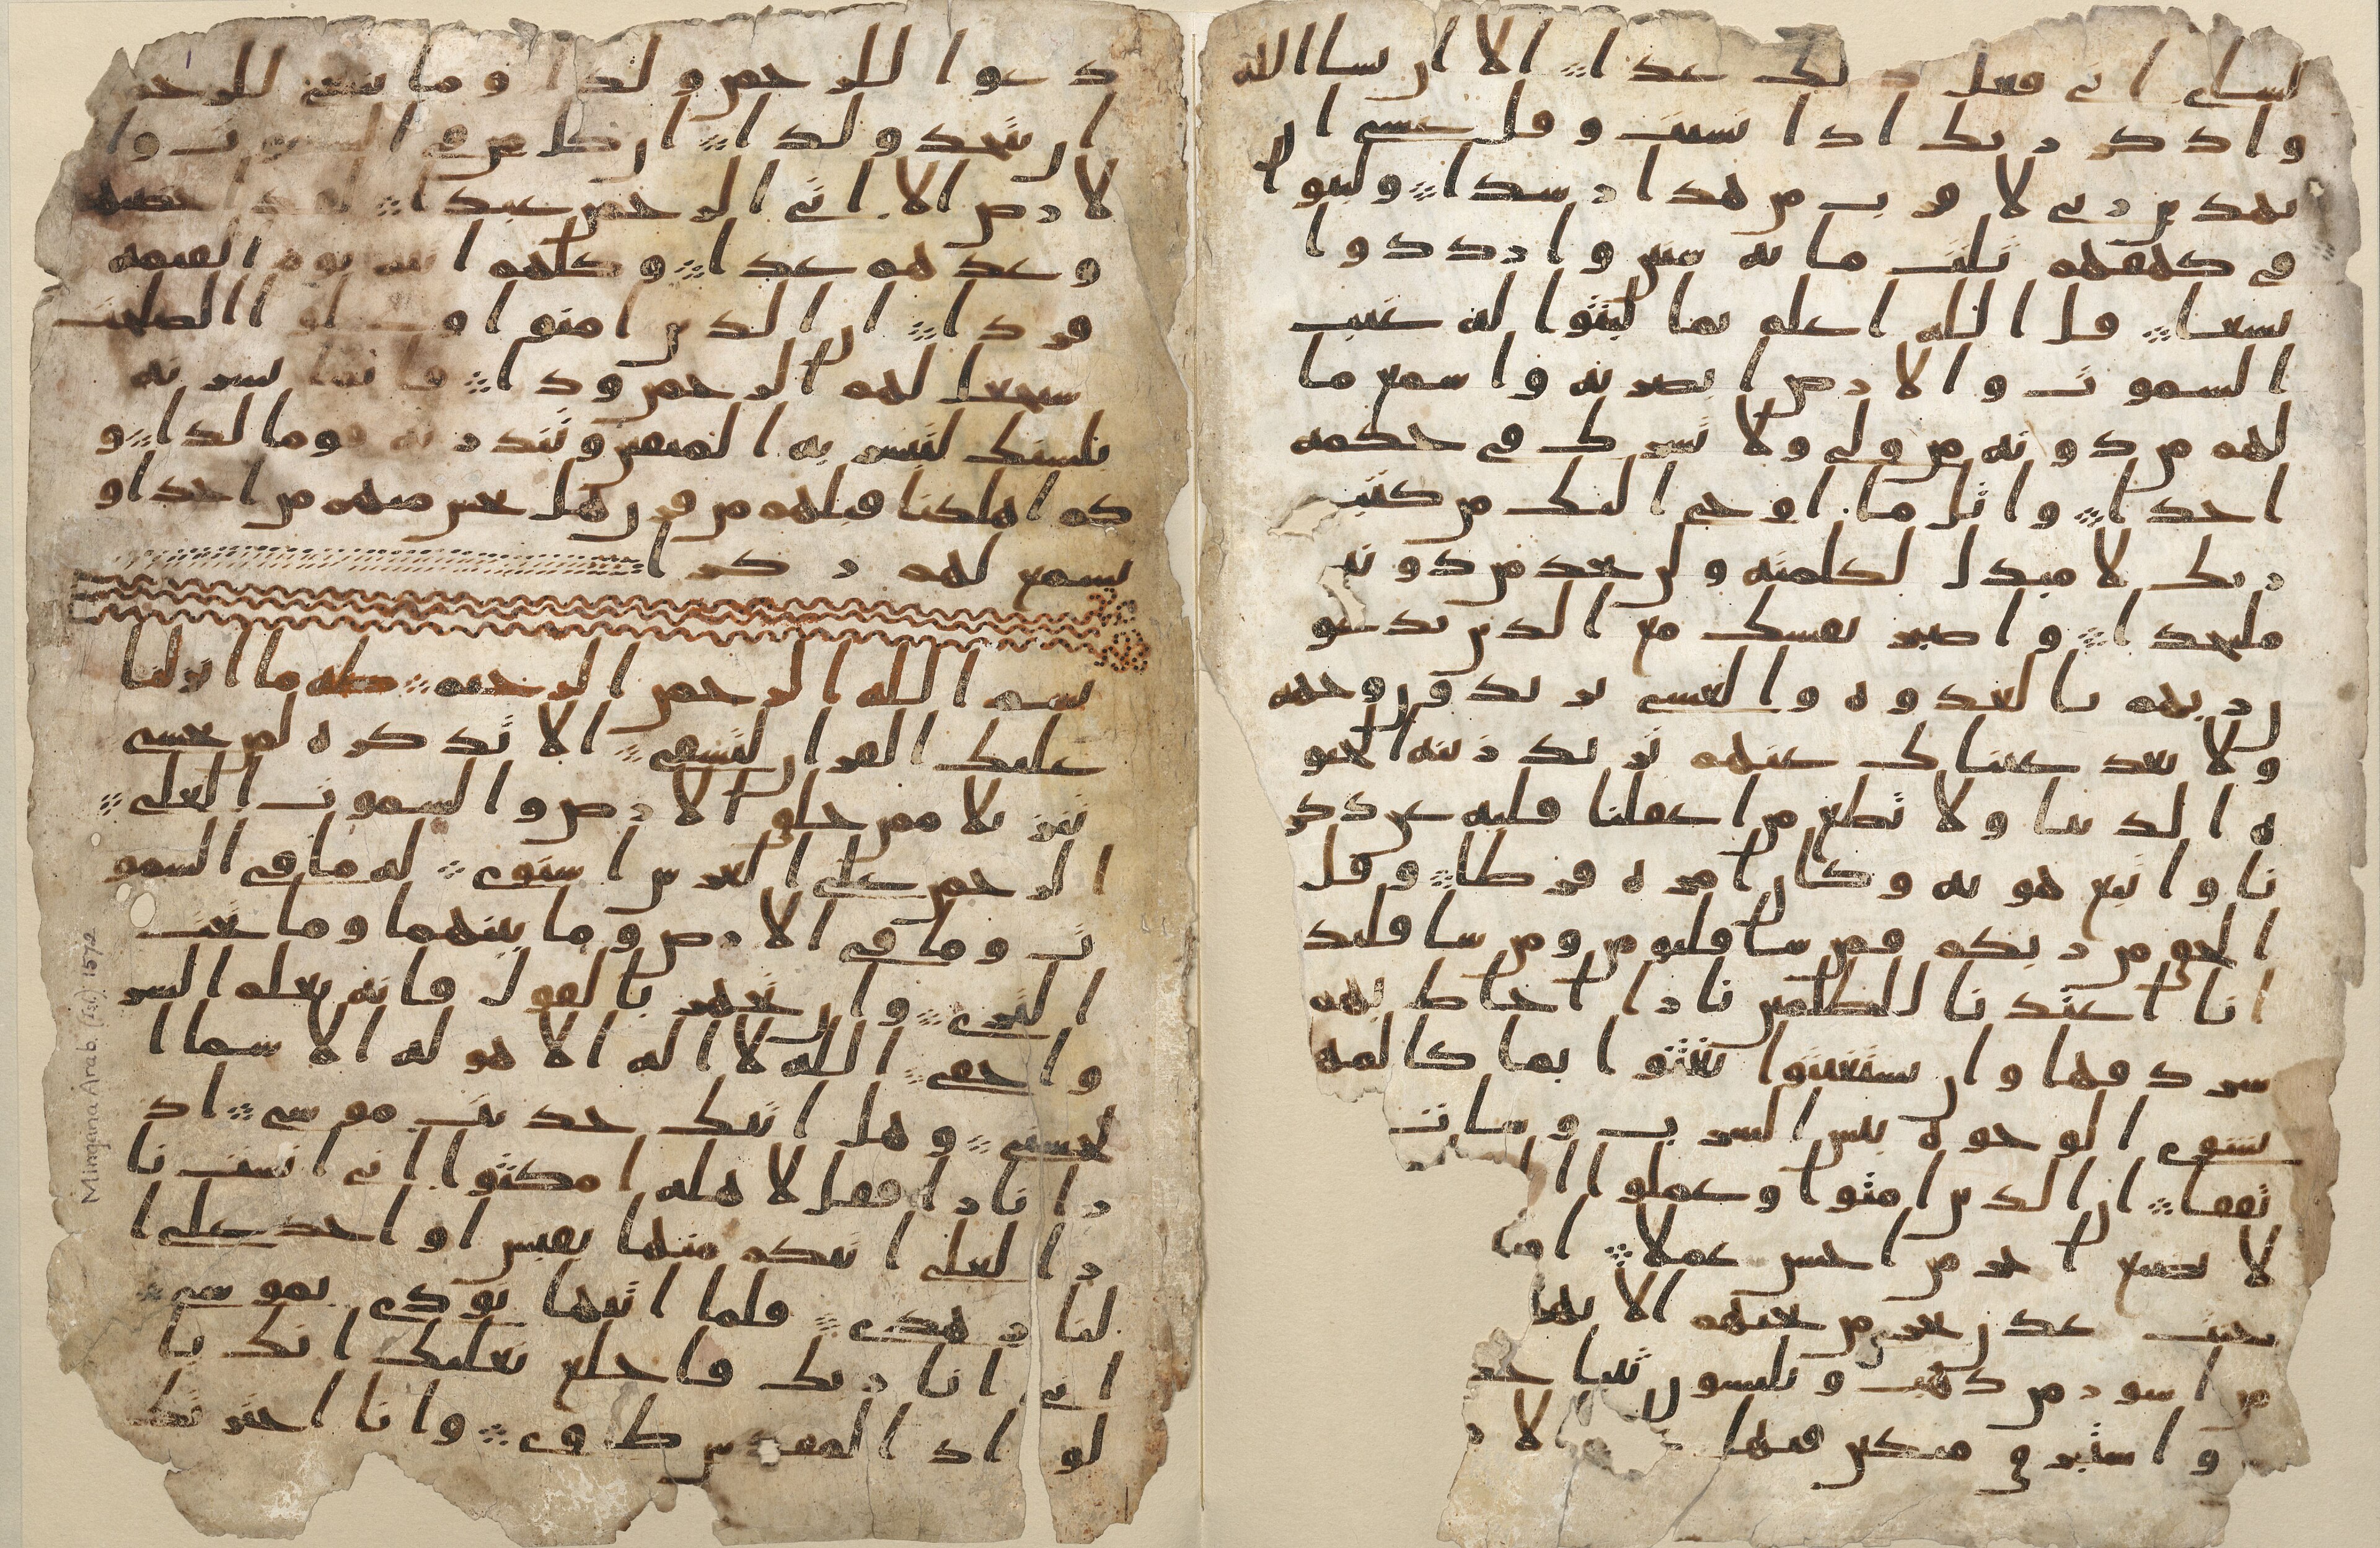 لشاي اني فعل ذلك غدا الا ان يشا الله
واذكر ربك اذا نسيت وقل عسى ان
يهدين ربي لاقرب من هذا رشدا ولبثوا
في كهفهم ثلث مايه سنين وازددوا
تسعا قل الله اعلم بما لبثوا له غيب
السموت والارض ابصر به واسمع ما
لهم من دونه من ولي ولا تشرك في حكمه
احدا واتل ما اوحي اليك من كتب
ربك لا مبدل لكلمته ولن تجد من دونه
ملتحدا واصبر نفسك مع الذين يدعو
ن ربهم بالغدوه والعشي يريدون وجهه
ولا تعد عيناك عنهم تريد زينه الحيو
ه الدنيا ولا تطع من اغفلنا قلبه عن ذكر
نا واتبع هويه وكان امره فرطا وقل
الحق من ربكم فمن شا فليومن ومن شا فليك
انا اعتدنا للظلمين نارا احاط بهم
سردقها وان يستغيثوا يغثوا بما كالمه
يشوي الوجوه بيس الشرب وسات
تفقا ان الذين امنوا وعملوا ا
لا نضيع اجر من احسن عملا او
جنت عدن تجري من تحتهم الانها
من اسور من ذهب ويلبسون ثيابا خ
واستبرق متكين فيها الار
دعوا للرحمن ولدا وما ينبغي للرحمن
ان يتخذ ولدا ان كل من في السموت وا
لارض الا اتي الرحمن عبدا لقد احصيهم
وعدهم عدا وكلهم اتيه يوم القيمه
فردا ان الذين امنوا وعملوا الصلحت
سيجعل لهم الرحمن ودا فانما يسرنه
بلسنك لتبشر به المتقين وتنذر به قوما لدا و
كم اهلكنا قبلهم من قرن هل تحس منهم من احد او
تسمع لهم ركزا
بسم الله الرحمن الرحيم طه ما انزلنا
عليك القران لتشقى الا تذكره لمن يخشى
تنزيلا ممن خلق الارض والسموت العلى
الرحمن على العرش استوى له ما في السمو
ت وما في الارض وما بينهما وما تحت
الثرى وان تجهر بالقول فانه يعلم السر
واخفى الله لا اله الا هو له الاسما ا
لحسنى وهل اتيك حديث موسى اذ
را نارا فقل لاهله امكثوا اني انست نا
را لعلي اتيكم منها بقبس او اجد على ا
لنار هدى فلما اتيها نودي يموسى
اني انا ربك فاخلع نعليك انك با
لواد المقدس طوى وانا اخترتك
Mingana Arab. (Isl.) 1572